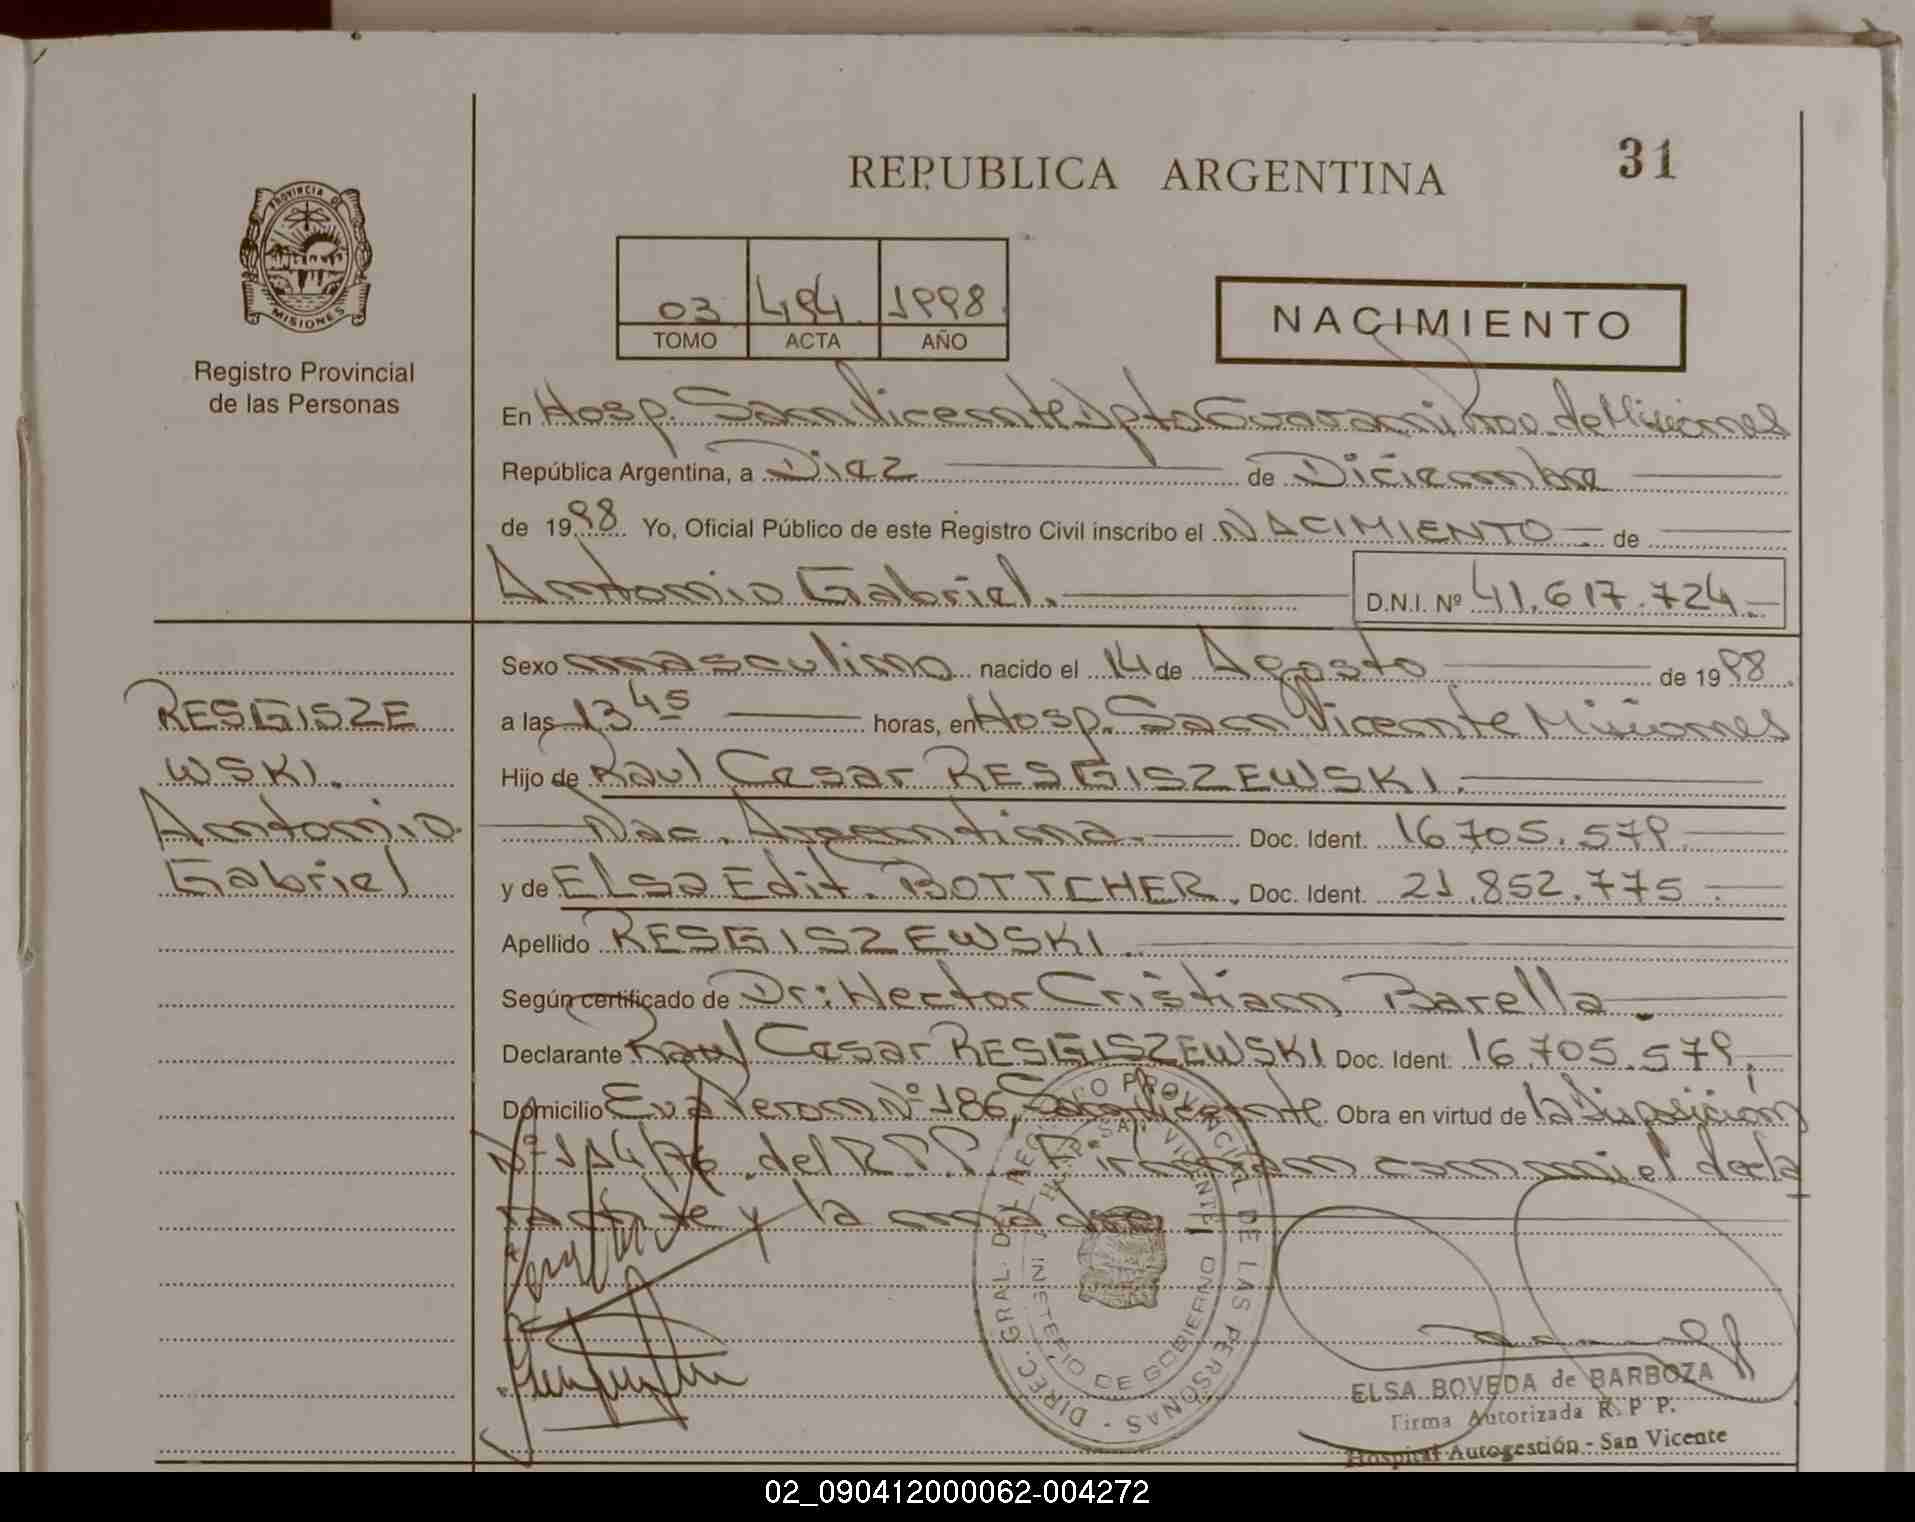 REPUBLICA ARGENTINA
31
PROVINCIA DE
MISIONES
Registro Provincial
de las Personas
03 494 1998
TOMO ACTA AÑO
NACIMIENTO
En Hosp. San Vicente Dpto Guarani Prov. de Misiones
República Argentina, a Diez de Diciembre
de 1998 Yo, Oficial Público de este Registro Civil inscribo el NACIMIENTO de
Antonio Gabriel. D.N.I. Nº 41.617.724.-
RESGISZE
WSKI.
Antonio.
Gabriel
Sexo masculino nacido el 14 de Agosto de 1998.
a las 13 45 horas, en Hosp. San Vicente Misiones
Hijo de Raul Cesar RESGISZEWSKI.
Nac. Argentina. Doc. Ident. 16.705.579
y de ELsa Edit. BOTTCHER. Doc. Ident. 21.852.775
Apellido RESGISZEWSKI.
Según certificado de Dr: Hector Cristian Barella
Declarante Raul Cesar RESGISZEWSKI Doc. Ident. 16.705.579.
Domicilio Eva Peron Nº 186, San Vicente. Obra en virtud de la Disposición
Nº 114/76 del R.P.P. Firman conmi el decla
rante y la madre
DIREC. GRAL. DEL REGISTRO PROVINCIAL DE LAS PERSONAS -
HOSP. SAN VICENTE
MINISTERIO DE GOBIERNO
ELSA BOVEDA de BARBOZA
Firma Autorizada R. P. P.
Hospital Autogestión - San Vicente
02_090412000062-004272